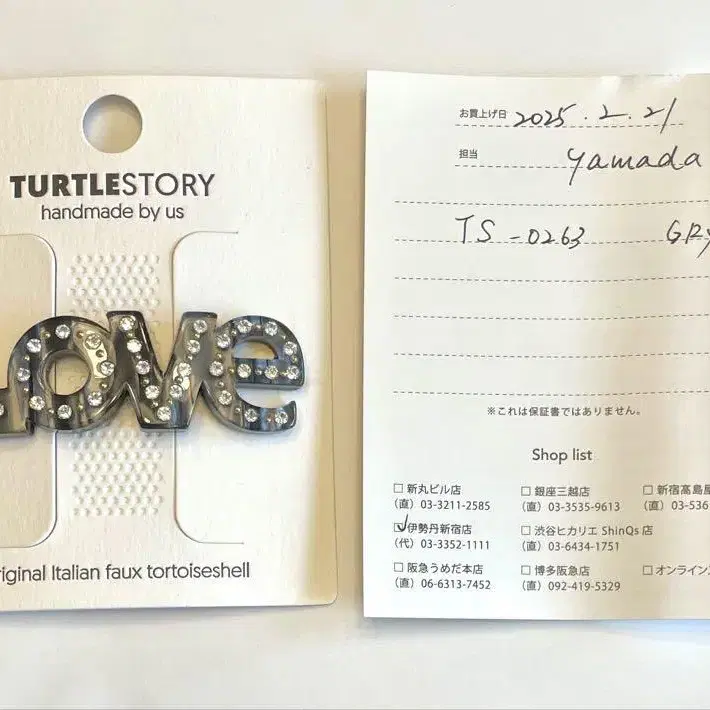 TURTLESTORY
handmade by us
Love
riginal Italian faux tortoiseshell
お買上げ日 2025.2.21
担当 yamada
TS-0263 GRY
※これは保証書ではありません。
Shop list
□新丸ビル店 □銀座三越店 □新宿高島屋
(直) 03-3211-2585 (直) 03-3535-9613 (直) 03-536
☑伊勢丹新宿店 □渋谷ヒカリエ ShinQs 店
(代) 03-3352-1111 (直) 03-6434-1751
□阪急うめだ本店 □博多阪急店 □オンライン
(直) 06-6313-7452 (直) 092-419-5329